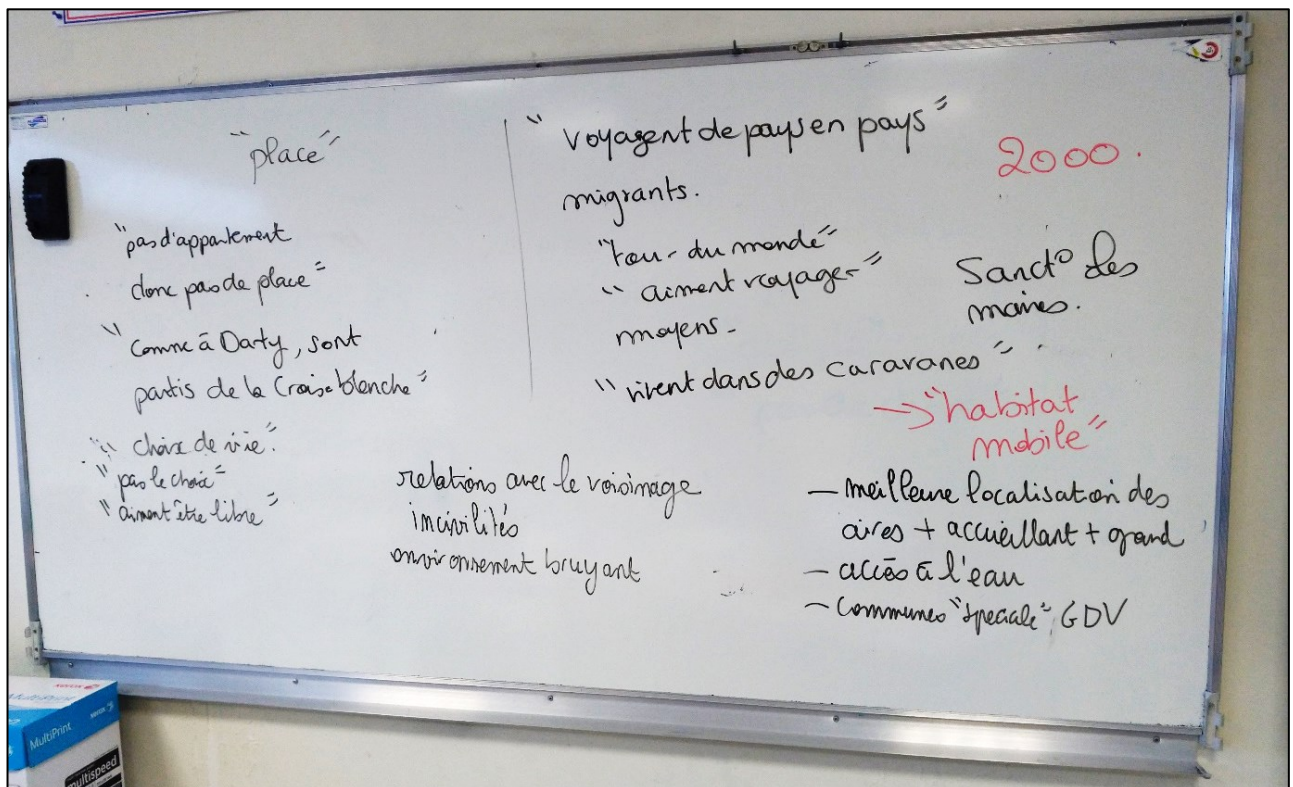 "place"
"pas d'appartement
donc pas de place"
"comme à Darty, sont
partis de la Croix blanche"
"choix de vie".
"pas le choix"
"aiment être libre"
"voyagent de pays en pays"
migrants.
"tour du monde"
"aiment voyager"
moyens.
"vivent dans des caravanes"
2000.
Sanct° des
maires.
→ "habitat
mobile"
relations avec le voisinage
incivilités
environnement bruyant
- meilleure localisation des
aires + accueillant + grand
- accès à l'eau
- communes "spéciale" GDV
MultiPrint
multispeed